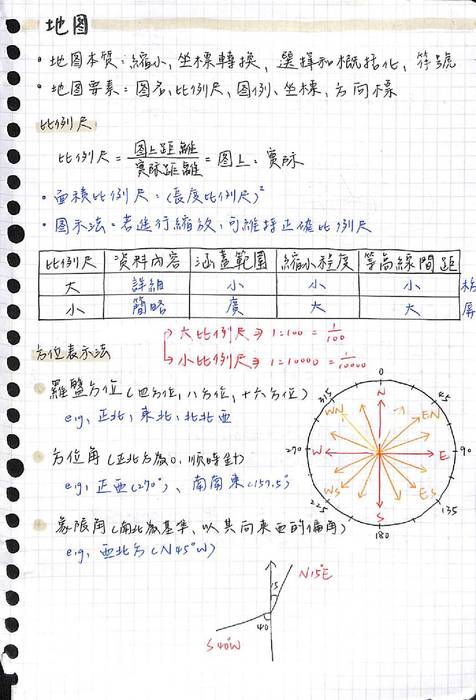 地圖
• 地圖本質:縮小,坐標轉換,選擇和概括化,符號
• 地圖要素:圖名,比例尺,圖例,坐標,方向標
比例尺
比例尺 = 圖上距離/實際距離 = 圖上:實際
• 面積比例尺:(長度比例尺)²
• 圖示法:若進行縮放,可維持正確比例尺
比例尺 資料內容 涵蓋範圍 縮小程度 等高線間距
大 詳細 小 小 小
小 簡略 廣 大 大
→ 大比例尺 ⇒ 1:100 = 1/100
→ 小比例尺 ⇒ 1:10000 = 1/10000
方位表示法
• 羅盤方位(四方位,八方位,十六方位)
e.g. 正北,東北,北北西
• 方位角(正北方為0,順時針)
e.g. 正西(270°)、南南東(157.5°)
• 象限角(南北為基準,以其向東西的偏角)
e.g. 西北方(N45°W)
0
45
90
135
180
225
270
315
N
EN
E
ES
S
WS
W
WN
N15°E
15
40
S40°W